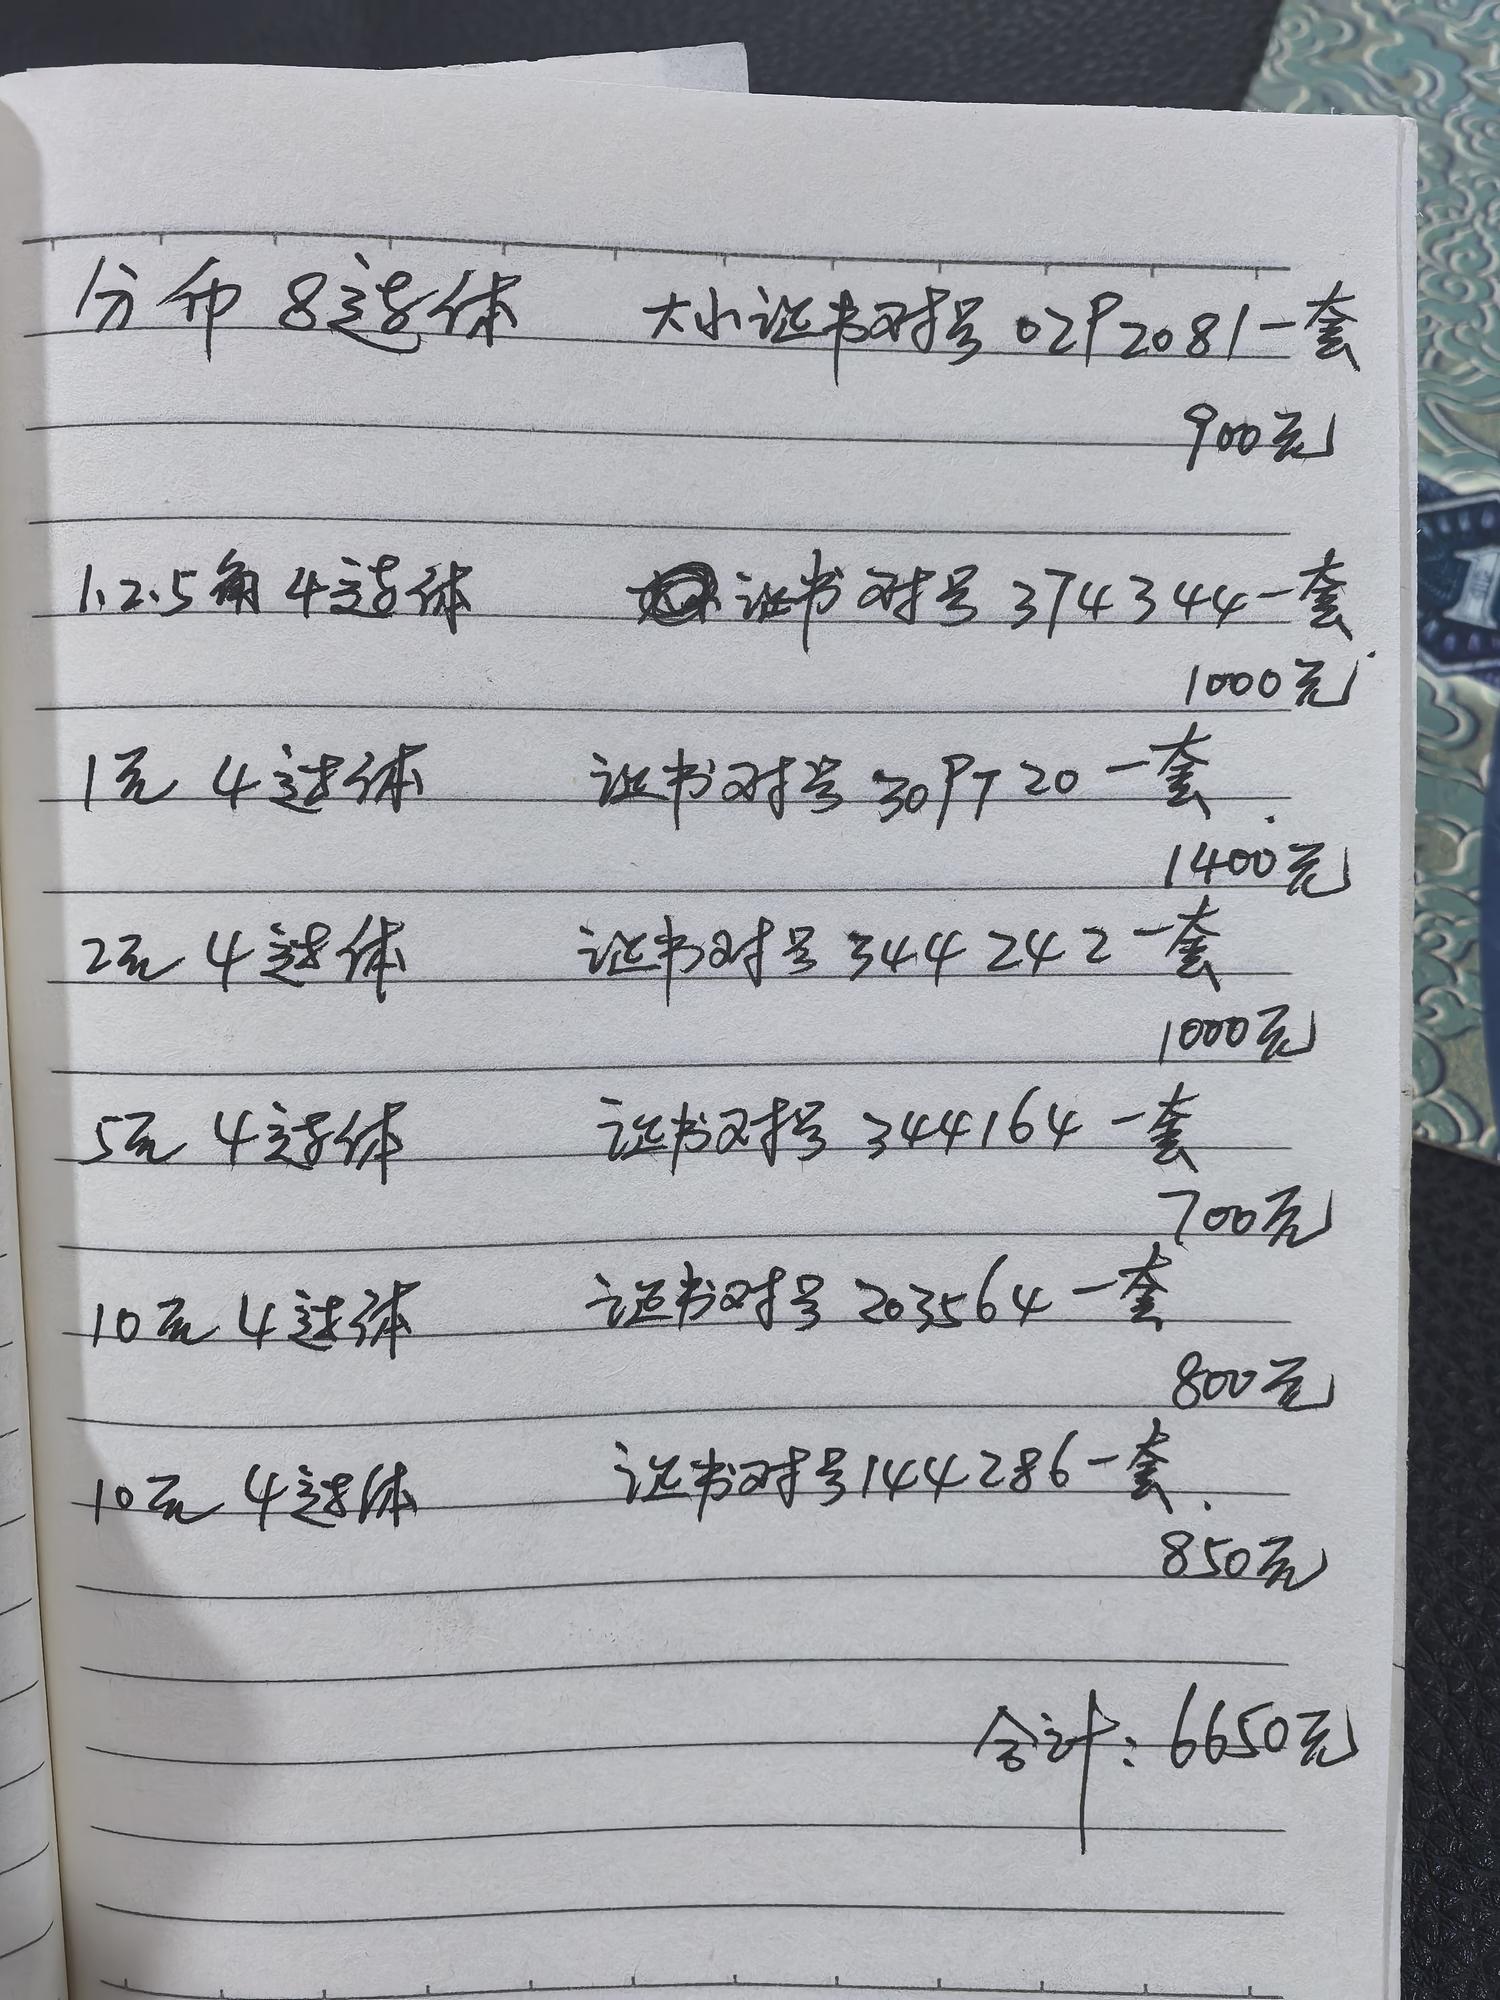 分币 8连体 大小证书对号 0292081一套
900元
1.2.5角 4连体 证书对号 374344一套
1000元
1元 4连体 证书对号 309720一套
1400元
2元 4连体 证书对号 344242一套
1000元
5元 4连体 证书对号 344164一套
700元
10元 4连体 证书对号 203564一套
800元
10元 4连体 证书对号 144286一套
850元
合计: 6650元
1